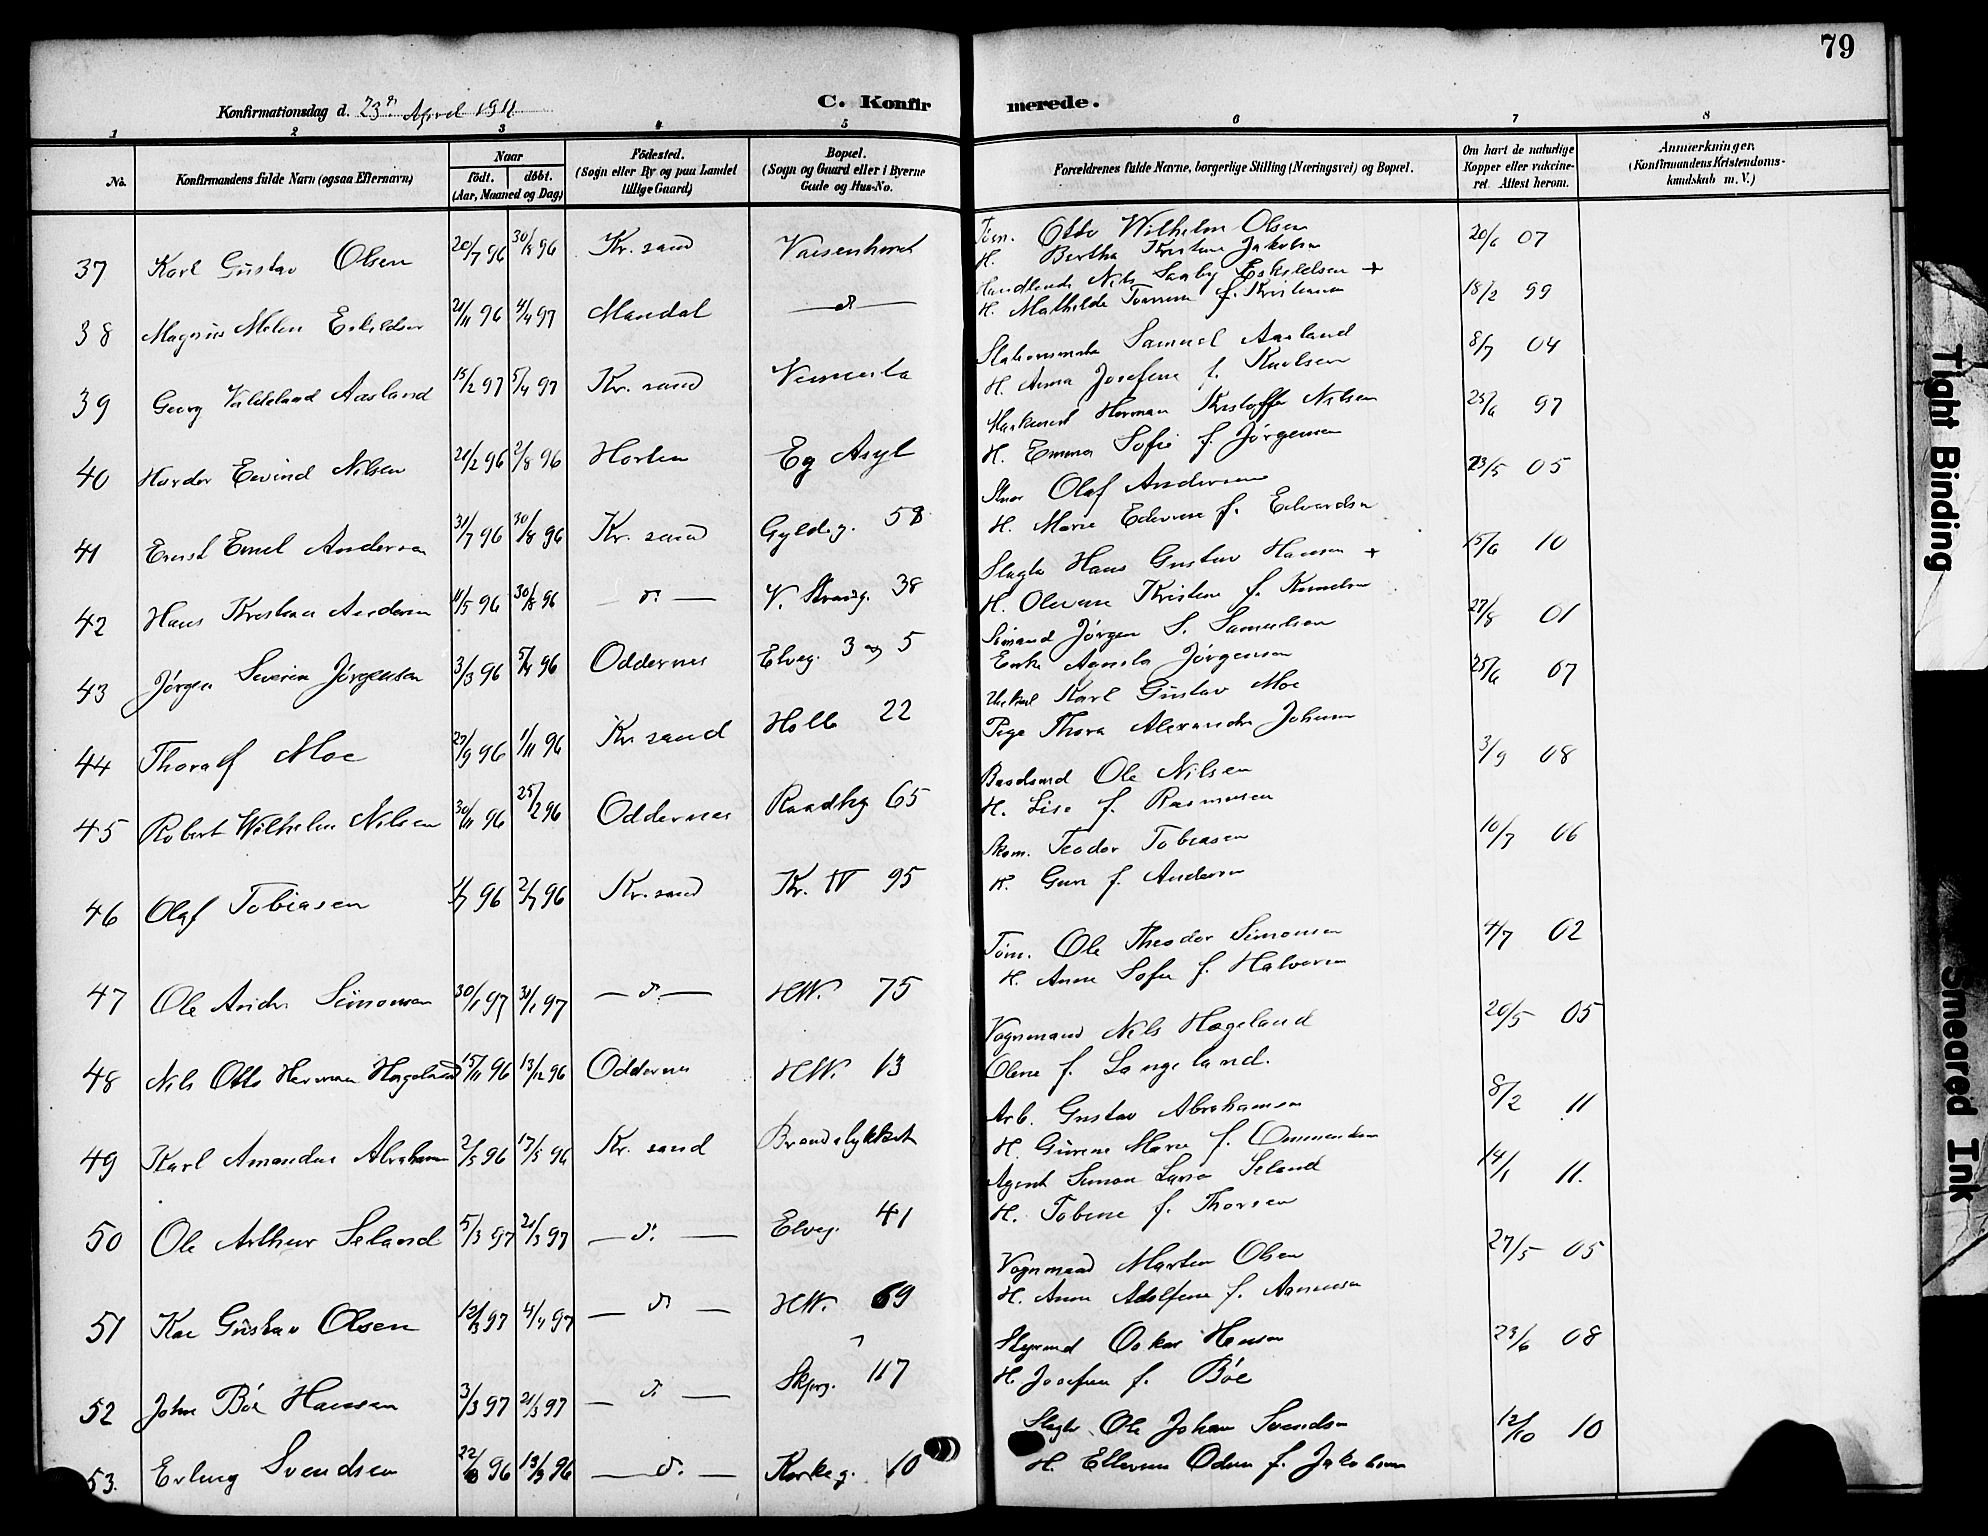 79
Konfirmationsdag d. 23de April 1911
C. Konfirmerede.
1 2 3 4 5 6 7 8
No.
Konfirmandens fulde Navn (ogsaa Efternavn)
Naar
födt. döbt.
(Aar, Maaned og Dag)
Födested.
(Sogn eller By og paa Landet
tillige Gaard)
Bopæl.
(Sogn og Gaard eller i Byerne
Gade og Hus-No.
Forældrenes fulde Navne, borgerlige Stilling (Næringsvei) og Bopæl.
Om havt de naturlige
Kopper eller vakcine-
ret. Attest herom.
Anmærkninger.
(Konfirmandens Kristendoms-
kundskab m. V.)
37 Karl Gustav Olsen 20/7 96 30/8 96 Kr.sand Vaisenhuset Tøm. Otto Wilhelm Olsen 20/6 07
H. Bertha Kristine Jakobsen
38 Magnus Melen Eskildsen 21/11 96 4/4 97 Mandal — d — Handlende Nils Saaby Eskildsen + 18/2 99
H. Mathilde f. Kristensen
39 Georg Aasland 15/2 97 5/4 97 Kr.sand Vennesla Samuel Aasland 8/7 04
H. Anna Josefine f. Karlsen
40 Eivind Nilsen 21/2 96 2/8 96 Horten Eg Asyl Herman Kristoffer Nilsen 25/6 97
H. Emma Sofie f. Jørgensen
41 Ernst Emil Andersen 31/7 96 30/8 96 Kr.sand Gyldg. 58 Olaf Andersen 23/5 05
H. Marie f. Edvardsen
42 Hans Kristian Andersen 11/5 96 30/8 96 — d. — V. Strandg. 38 Slagter Hans Gustav Hansen + 15/6 10
H. Olevine Kristine f.
43 Jørgen Severin Jørgensen 3/3 96 5/4 96 Oddernes Elveg. 3 og 5 Sømand Jørgen S. Samuelsen 27/8 01
Enke Jørgensen
44 Thoralf Moe 27/9 96 1/11 96 Kr.sand Holb 22 Karl Gustav Moe 25/6 07
Pige Thora Alexandra Johnsen
45 Robert Wilhelm Nilsen 30/11 96 25/12 96 Oddernes Raadhg 65 Baadsmd Ole Nilsen 3/9 08
H. Lise f. Rasmussen
46 Olaf Tobiasen 1/7 96 2/7 96 Kr.sand Kr. IV 95 Skom. Teodor Tobiasen 10/7 06
H. Guri f. Andersen
47 Ole Andr. Simonsen 30/1 97 31/1 97 — d. — HW. 75 Tøm. Ole Theodor Simonsen 4/7 02
H. Anne Sofie f. Halvorsen
48 Nils Otto Herman Hægeland 15/11 96 13/12 96 Oddernes HW. 13 Vognmand Nils Hægeland 20/5 05
Olene f. Langeland.
49 Karl Amandus Abrahamsen 2/5 96 17/5 96 Kr.sand Arb. Gustav Abrahamsen 8/2 11
H. Gurine Marie f. Ommundsen
50 Ole Arthur Seland 5/3 97 21/3 97 — d. — Elveg. 41 Agent Simon Lars Seland 14/1 11.
H. Tobine f. Thorsen
51 Kar Gustav Olsen 12/3 97 4/4 97 — d. — HW. 69 Vognmand Martin Olsen 27/5 05
H. Anne Adolfine f. Aanensen
52 John Böe Hansen 3/3 97 21/3 97 — d. — Skprg. 117 Styrmd Oskar Hansen 23/6 08
H. Josefine f. Böe
53. Erling Svendsen 22/ 96 13/ 96 — d. — Kirkeg. 10 Slagter Ole Johan Svendsen 12/10 10
H. Ellevine f. Jakobsen
Tight Binding
Smeared Ink